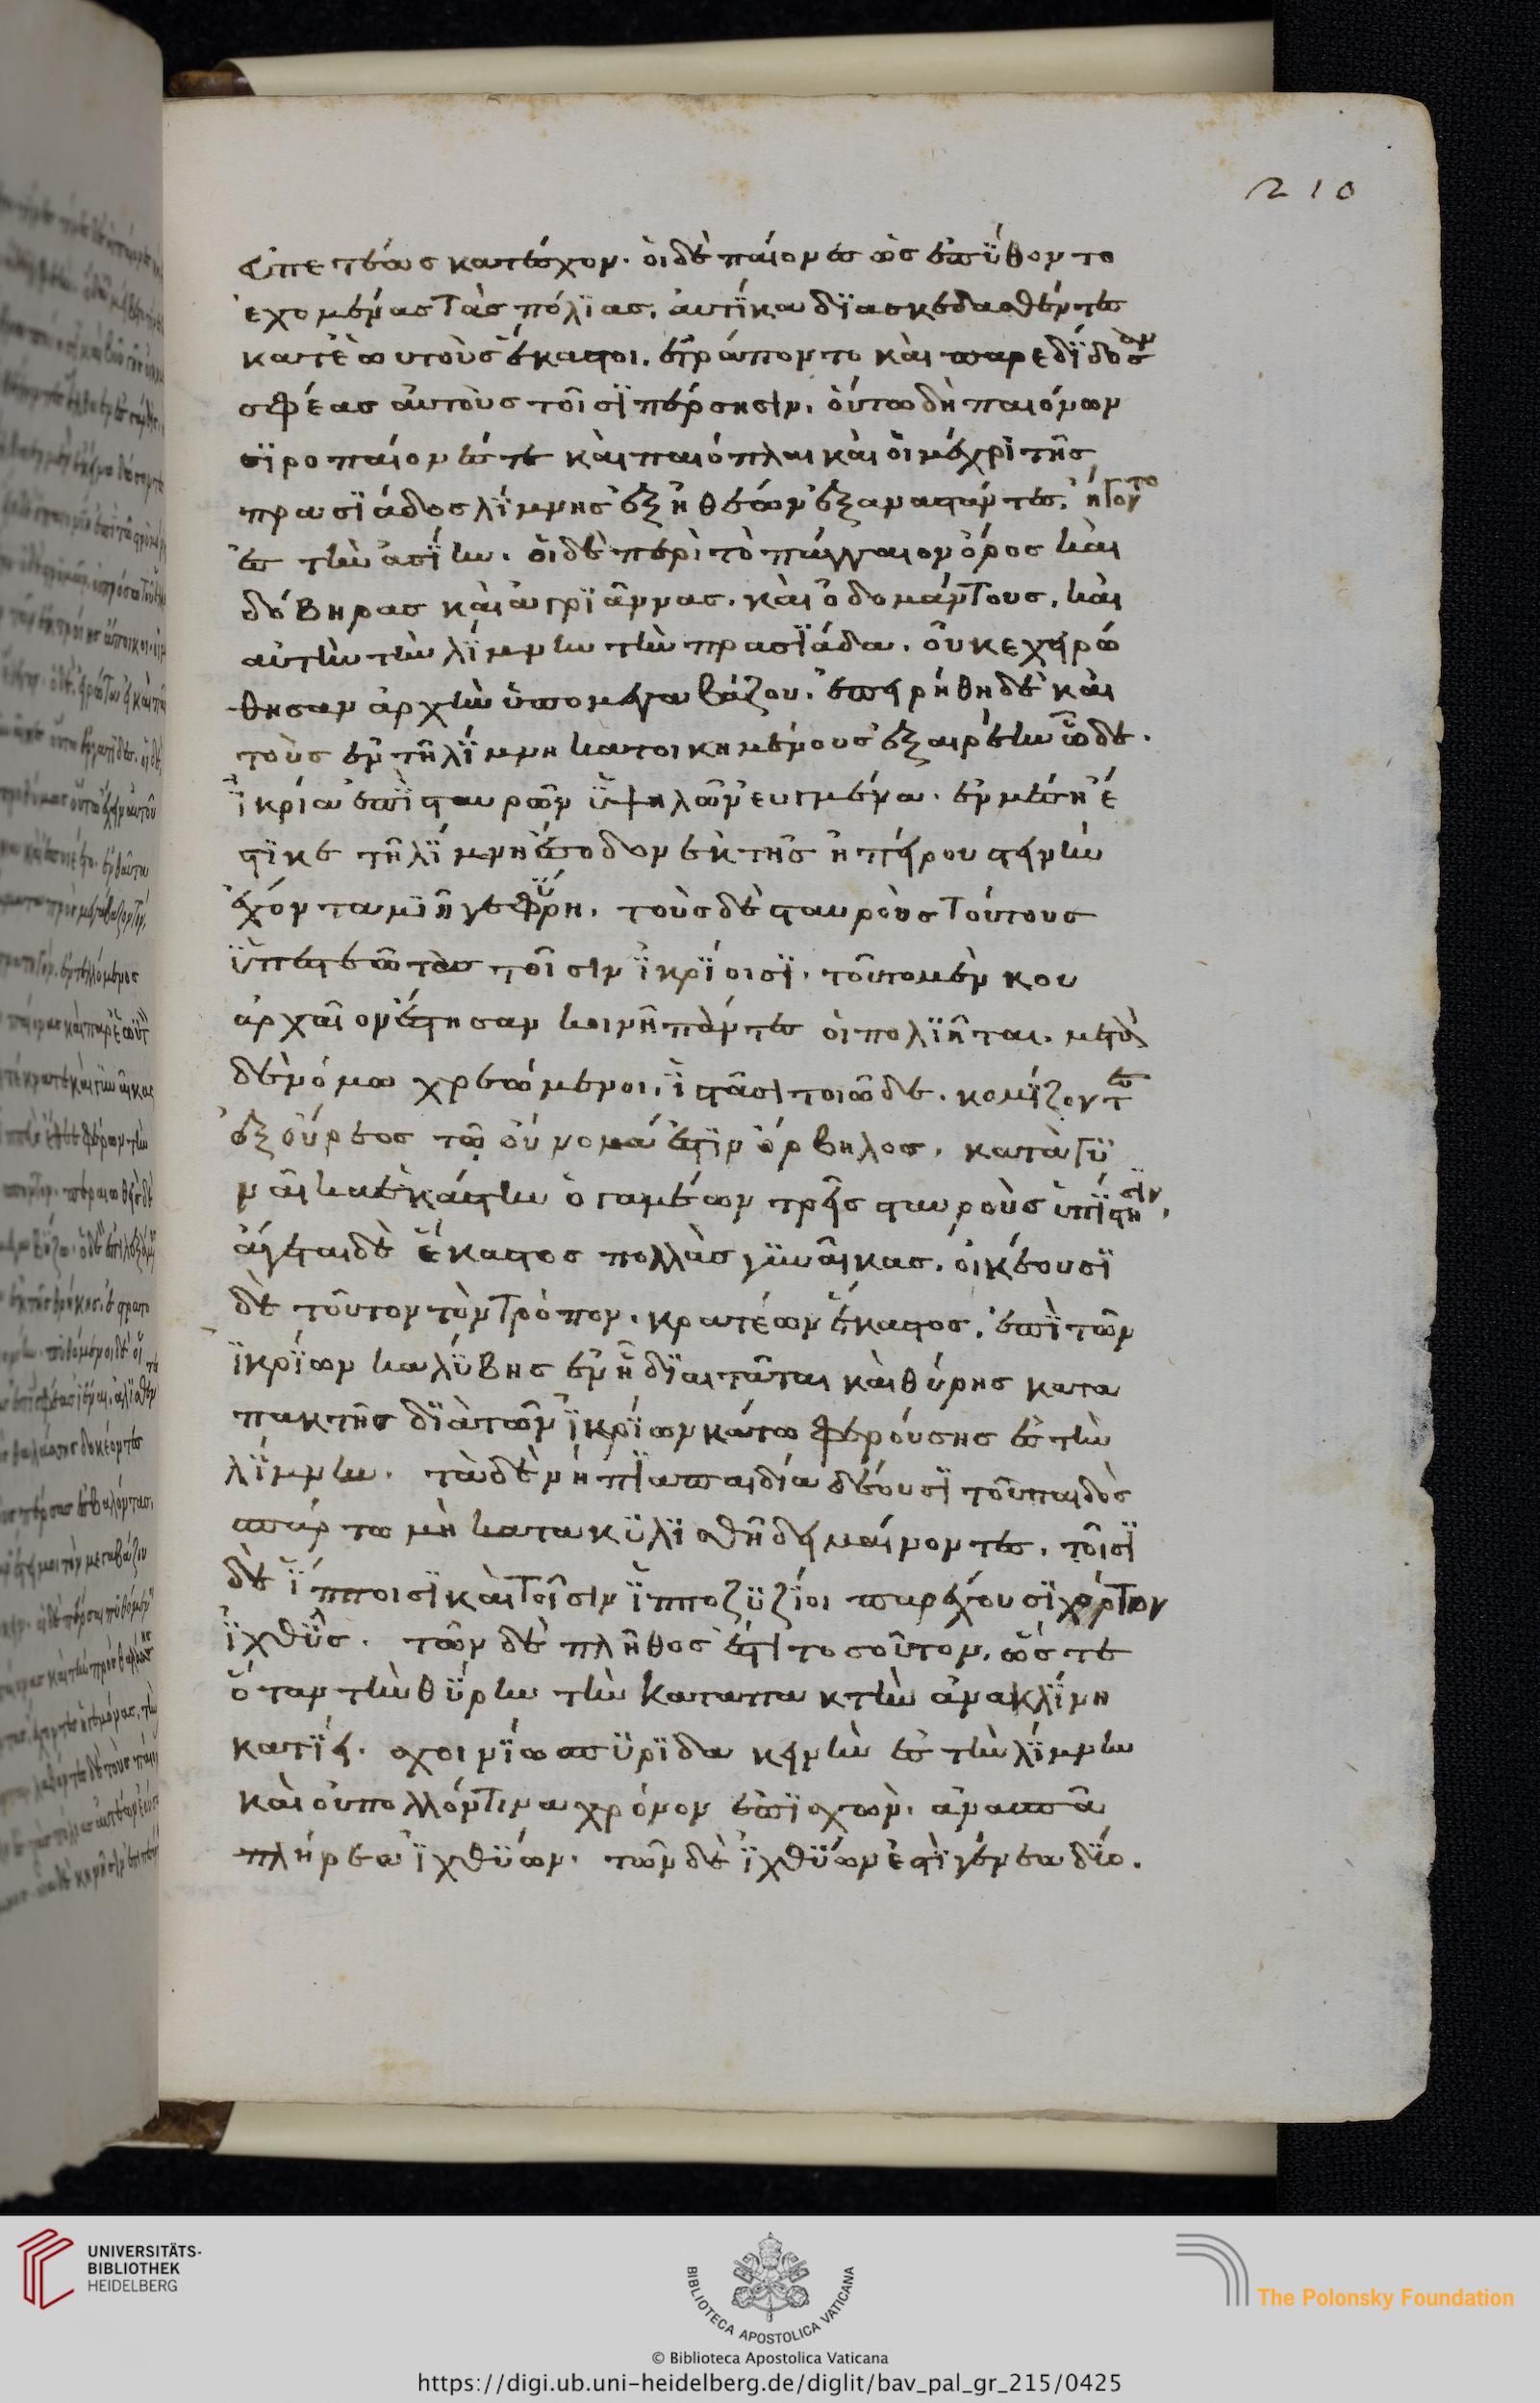 210
ἐπετέως κατέσχον. ὁι δὲ παίονες ὡς ἐπύθοντο
ἐχομένας τὰς πόλϊας, ἀυτίκα δϊασκεδασθέντες
κατ' ἑωυτοὺς ἕκαστοι, ἐτράποντο καὶ παρεδίδοσαν
σφέας ἀυτοὺς τοῖσϊ πέρσησιν. ὅυτω δὴ παιόνων
σϊροπαίονές τε καὶ παιόπλαι καὶ ὁι μέχρι τῆς
πρασϊάδος λίμνης ἐξ ἠθέων ἐξαναστάντες, ἤγοντο
ἐς τὴν ἀσίην. ὁι δὲ περὶ τὸ πάγγαιον ὄρος καὶ
δόβηρας καὶ ἀγρϊᾶννας. καὶ ὀδομάντους, καὶ
αὐτὴν τὴν λίμνην τὴν πρασϊάδα. ὀυκ ἐχειρώ
θησαν ἀρχὴν ὑπο μεγαβάζου. ἐπειρήθη δὲ καὶ
τοὺς ἐν τῆ λίμνη κατοικημένους ἐξαιρέειν ὧδε.
ἴκρια ἐπὶ σταυρῶν ὑψηλῶν ἐζευγμένα. ἐν μέση ἕ
στϊκε τῆ λίμνη ἔσοδον ἐκ τῆς ἠπείρου στεινὴν
ἔχοντα μιῆ γεφύρη. τοὺς δὲ σταυροὺς τούτους
ὑπεστεῶτας τοῖσιν ἰκρίοισϊ. τοῦτο μέν κου
ἀρχαῖον ἔστησαν κοινῆ πάντες ὁι πολϊῆται. μετὰ
δὲ νόμω χρεώμενοι, ἱστᾶσι τοιῶδε. κομίζοντες
ἐξ ὄυρεος τῶ ὀύνομά ἐστϊν ὄρβηλος, κατὰ γυ
ναῖκα ἑκάστην ὁ γαμέων τρεῖς σταυροὺς ὑπίστησιν,
ἄγεται δὲ ἕκαστος πολλὰς γϋναῖκας. ὀικέουσϊ
δὲ τοῦτον τὸν τρόπον. κρατέων ἕκαστος. ἐπὶ τῶν
ἰκρίων καλύβης ἐν ἧ δϊαιτᾶται καὶ θύρης κατα
πακτῆς δϊὰ τῶν ἰκρίων κάτω φερούσης ἐς τὴν
λίμνην. τὰ δὲ νήπϊα παιδία δέουσϊ τοῦ παιδὸς
σπάρτω μὴ κατακϋλισθῆ δειμαίνοντες. τοῖσϊ
δὲ ἵπποισϊ καὶ τοῖσιν ὑποζϋζίοι παρέχουσϊ χόρτον
ἰχθῦς. τῶν δὲ πλῆθος ἐστὶ τοσοῦτον, ὥς τε
ὅταν τὴν θύρην τὴν καταπακτὴν ἀνακλίνη
κατϊεῖ. σχοινίω σπϋρίδα κεινὴν ἐς τὴν λίμνην
καὶ ὀυ πολλόν τινα χρόνον ἐπϊσχὼν. ἀνασπᾶ
πλήρεα ἰχθύων. τῶν δὲ ἰχθύων ἐστὶ γένεα δύο.
UNIVERSITÄTS-
BIBLIOTHEK
HEIDELBERG
BIBLIOTECA APOSTOLICA VATICANA
The Polonsky Foundation
© Biblioteca Apostolica Vaticana
https://digi.ub.uni-heidelberg.de/diglit/bav_pal_gr_215/0425